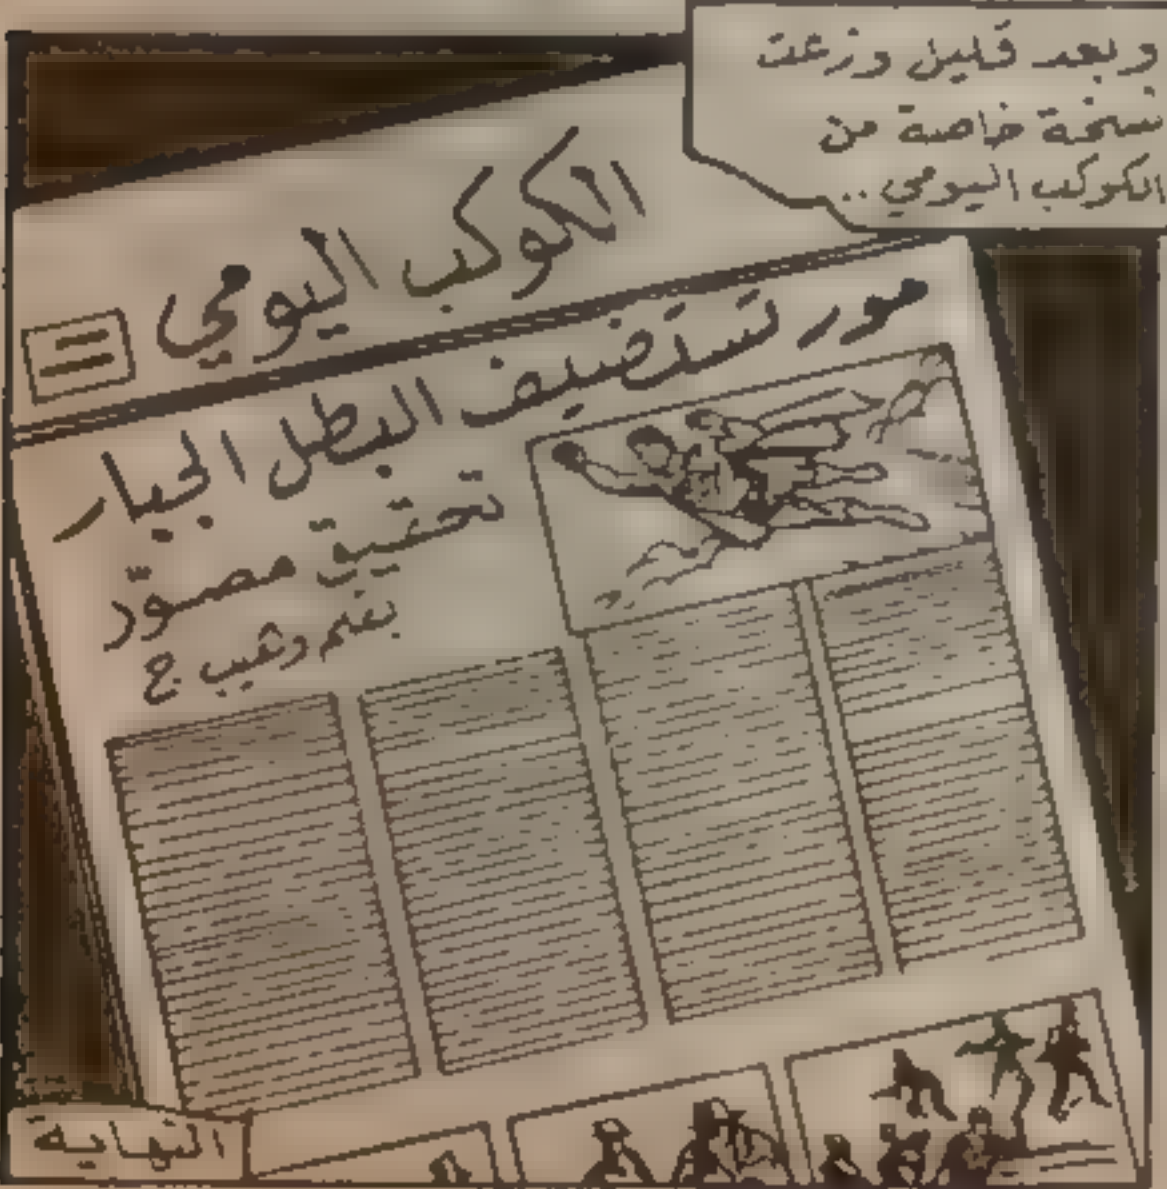 وبعد قليل وزعت
نسخة خاصة من
الكوكب اليومي ..
الكوكب اليومي
صور تستضيف البطل الجبار
تحقيق مصوّر
بقلم
النهاية